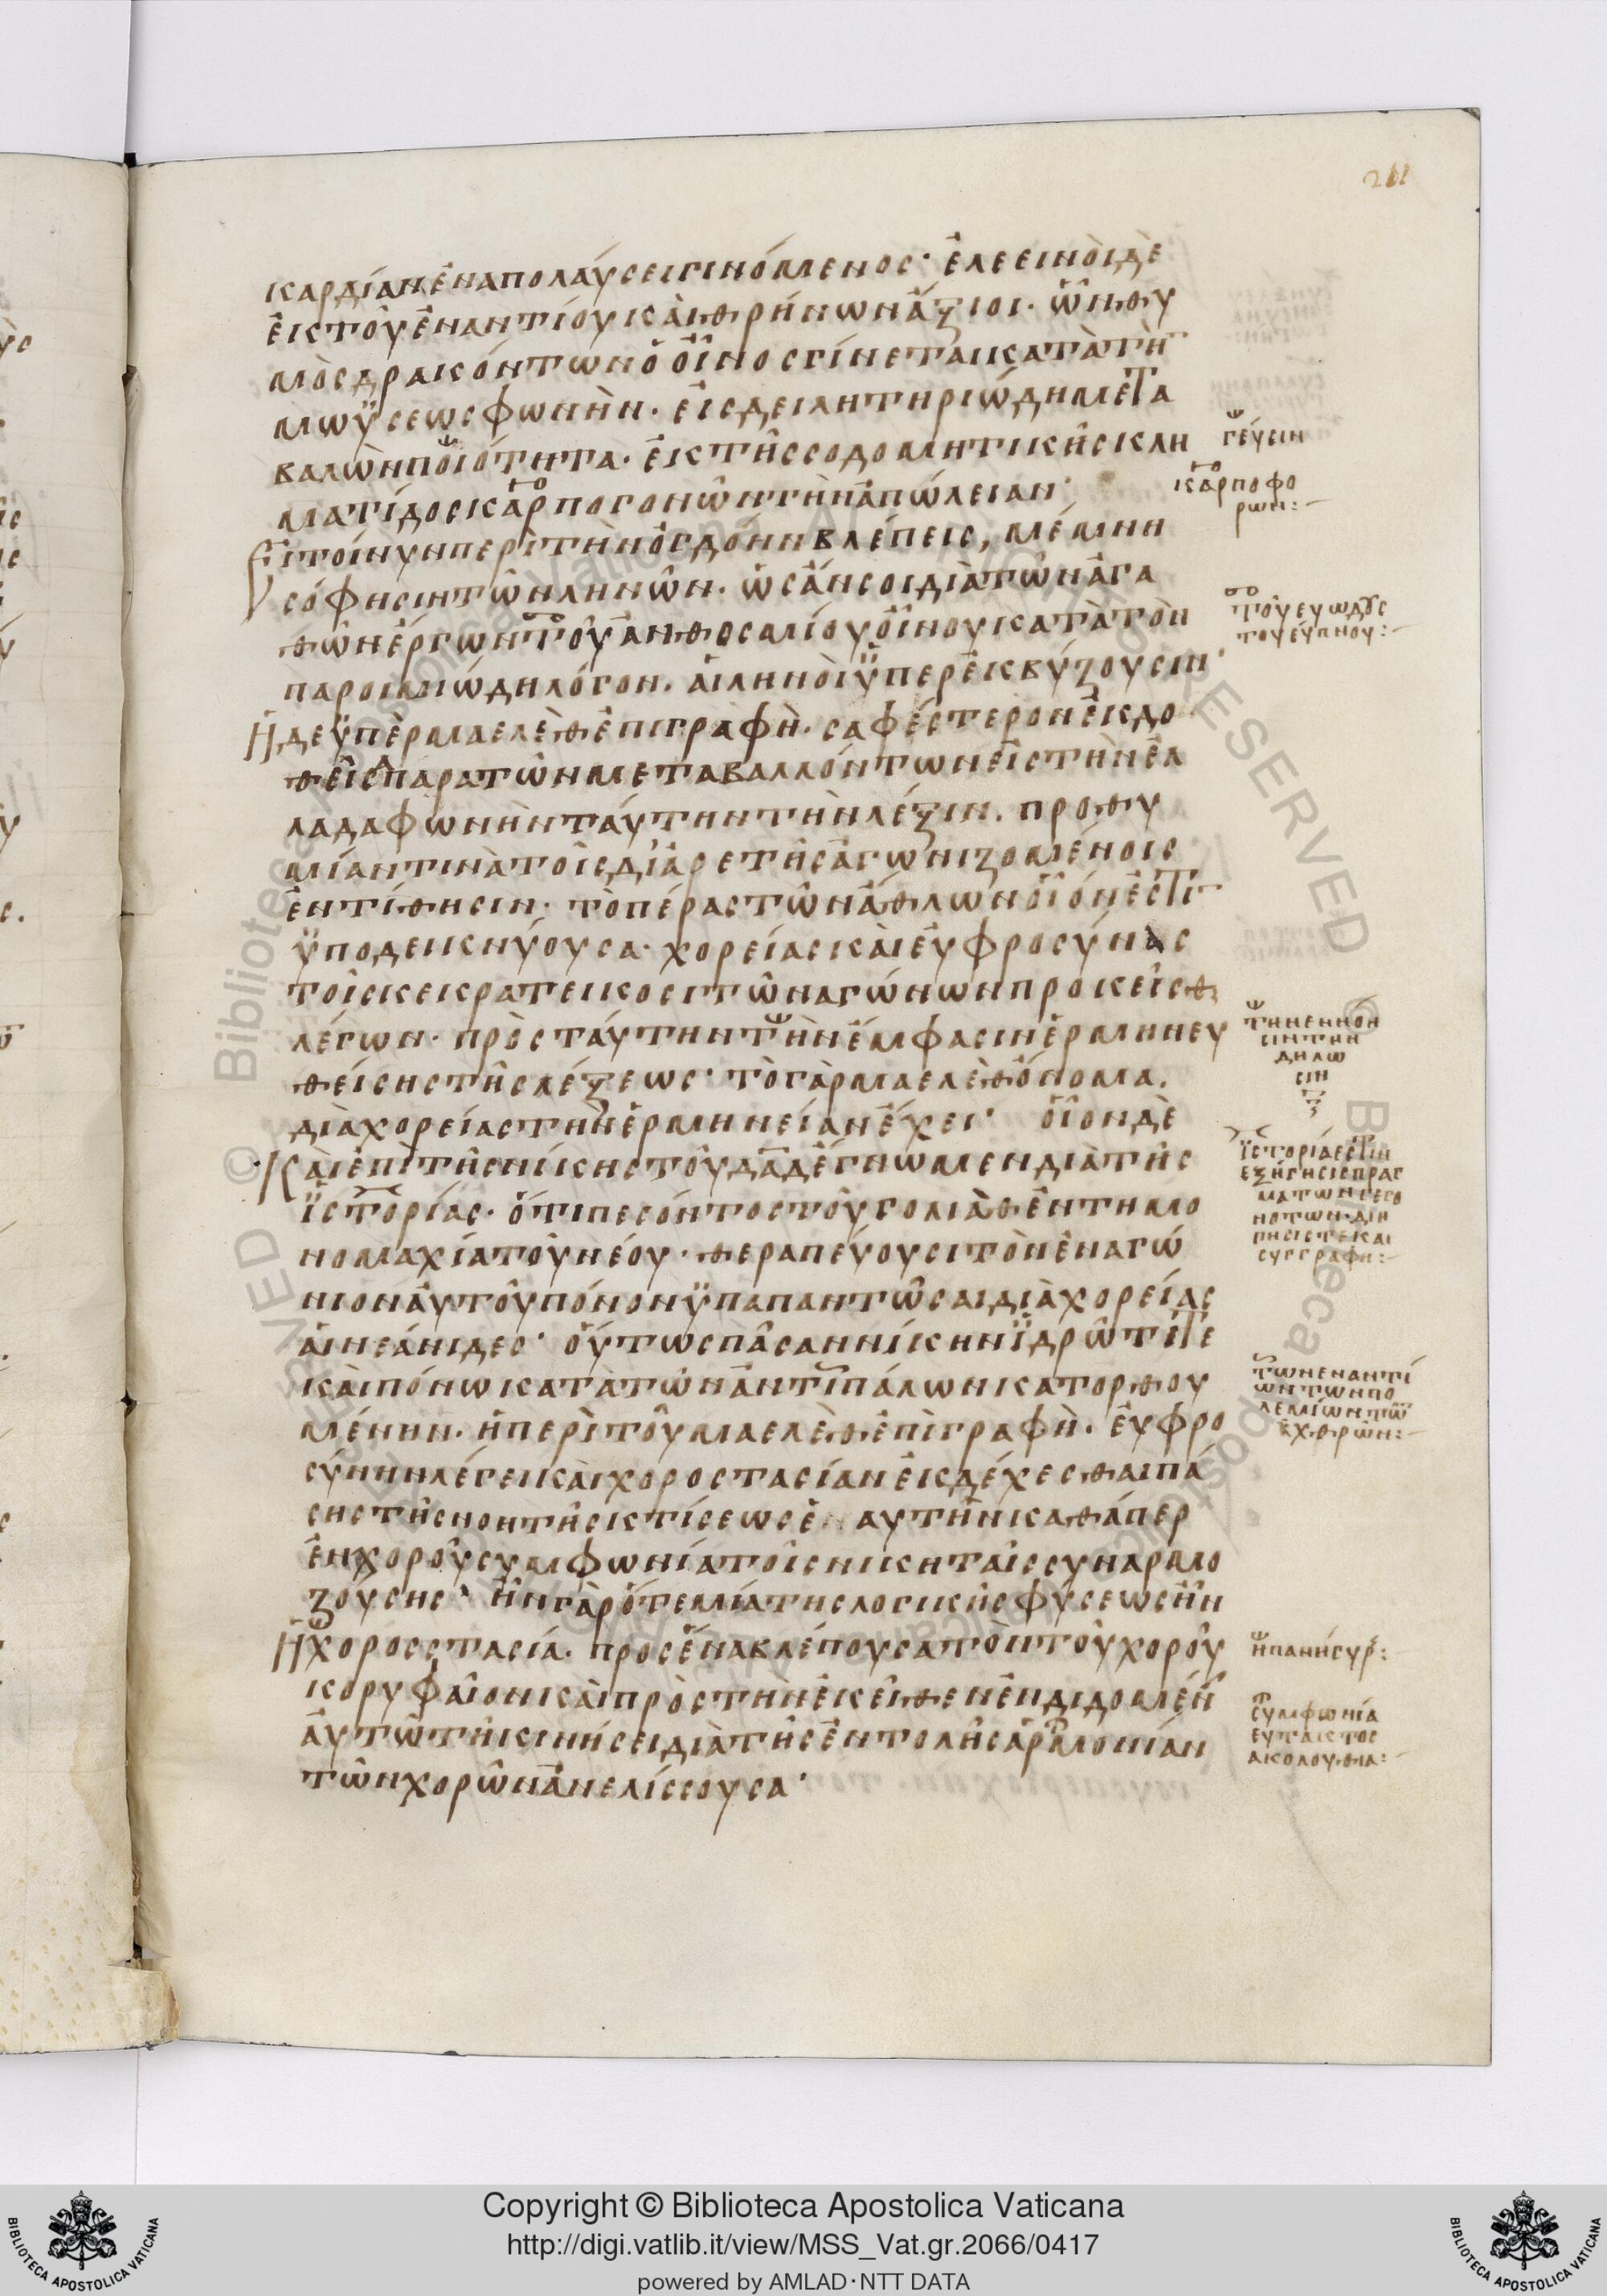 261
καρδίαν ἐν ἀπολαύσει γινόμενος· ἐλεεινοὶ δὲ
ἐκ τοῦ ἐναντίου καὶ θρήνων ἄξιοι· ὧν θυ
μὸς δρακόντων ὁ οἶνος γίνεται κατὰ τὴν
μωϋσέως φωνὴν· εἰς δειλητηριώδη μετα
βαλὼν ποιότητα· ἐκ τῆς σοδομητικῆς κλη
ματίδος καρπογονῶν τὴν ἀπώλειαν·
Εἰ τοίνυν περὶ τὴν ὀγδόην βλέπεις, μέμνη
σό φησιν τῶν ληνῶν· ὡς ἄν σοι διὰ τῶν ἀγα
θῶν ἔργων τοῦ ἀνθοσμίου οἴνου κατὰ τὸν
παροιμιώδη λόγον· αἱ ληνοὶ ὑπερεκβύζουσιν·
Ἡ δὲ ὑπὲρ μαελὲθ ἐπιγραφὴ· σαφέστερον ἐκδο
θεῖσα παρα τῶν μεταβαλλόντων εἰς τὴν ἑλ
λάδα φωνὴν ταύτην τὴν λέξιν· προθυ
μίαν τινὰ τοῖς δι' ἀρετῆς ἀγωνιζομένοις
ἐντίθησιν· τὸ πέρας τῶν ἄθλων οἷόν ἐστιν
ὑποδεικνύουσα· χορείας καὶ εὐφροσύνας
τοῖς κεκρατεικόσι τῶν ἀγώνων προκεῖσθαι
λέγων· πρὸς ταύτην τὴν ἔμφασιν ἑρμηνευ
θείσης τῆς λέξεως· τὸ γὰρ μαελὲθ ὄνομα·
διὰ χορείας τὴν ἑρμηνείαν ἔχει· οἷον δὲ
Καὶ ἐπὶ τῆς νίκης τοῦ δαδ ἔγνωμεν διὰ τῆς
ἱστορίας· ὅτι πεσόντος τοῦ γολιὰθ ἐν τῆ μο
νομαχία τοῦ νέου· θεραπεύουσι τὸν ἐναγώ
νιον αὐτοῦ πόνον ὑπαπαντῶσαι διὰ χορείας
αἱ νεάνιδες· οὕτως πᾶσαν νίκην ἱδρῶτί τε
καὶ πόνω κατὰ τῶν ἀντιπάλων κατορθου
μένην· ἡ περὶ τοῦ μαελὲθ ἐπιγραφὴ· εὐφρο
σύνην λέγει καὶ χοροστασίαν ἐκδέχεσθαι πά
σης τῆς νοητῆς κτίσεως ἑαυτὴν καθάπερ
ἐν χοροῦ συμφωνία τοῖς νικηταῖς συναρμο
ζούσης· ἦν γὰρ ὅτε μία τῆς λογικῆς φύσεως ἦν
Ἡ χοροσστασία· πρὸς ἕνα βλέπουσα τὸν τοῦ χοροῦ
κορυφαῖον καὶ πρὸς τὴν ἐκεῖθεν ἐνδιδομένην
αὐτῶ τῆ κινήσει διὰ τῆς ἐντολῆς ἁρμονίαν
τῶν χορῶν ἀνελίσσουσα·
γεύσιν
καρποφο
ρων:
τοῦ ευωδους
του εύπνου:
την εννοη
σιν την
δηλω
σιν
ϊστορία εστιν
εξήγησις πραγ
ματων γεγο
νοτων· διη
γησις τε και
συγγραφη:
των εναντί
ων των πο
λεμίων τῶν
ἐχθρῶν:
ἡ πανήγυρ:
συμφωνία
ευτακτος
ακολουθια:
Copyright © Biblioteca Apostolica Vaticana
http://digi.vatlib.it/view/MSS_Vat.gr.2066/0417
powered by AMLAD·NTT DATA